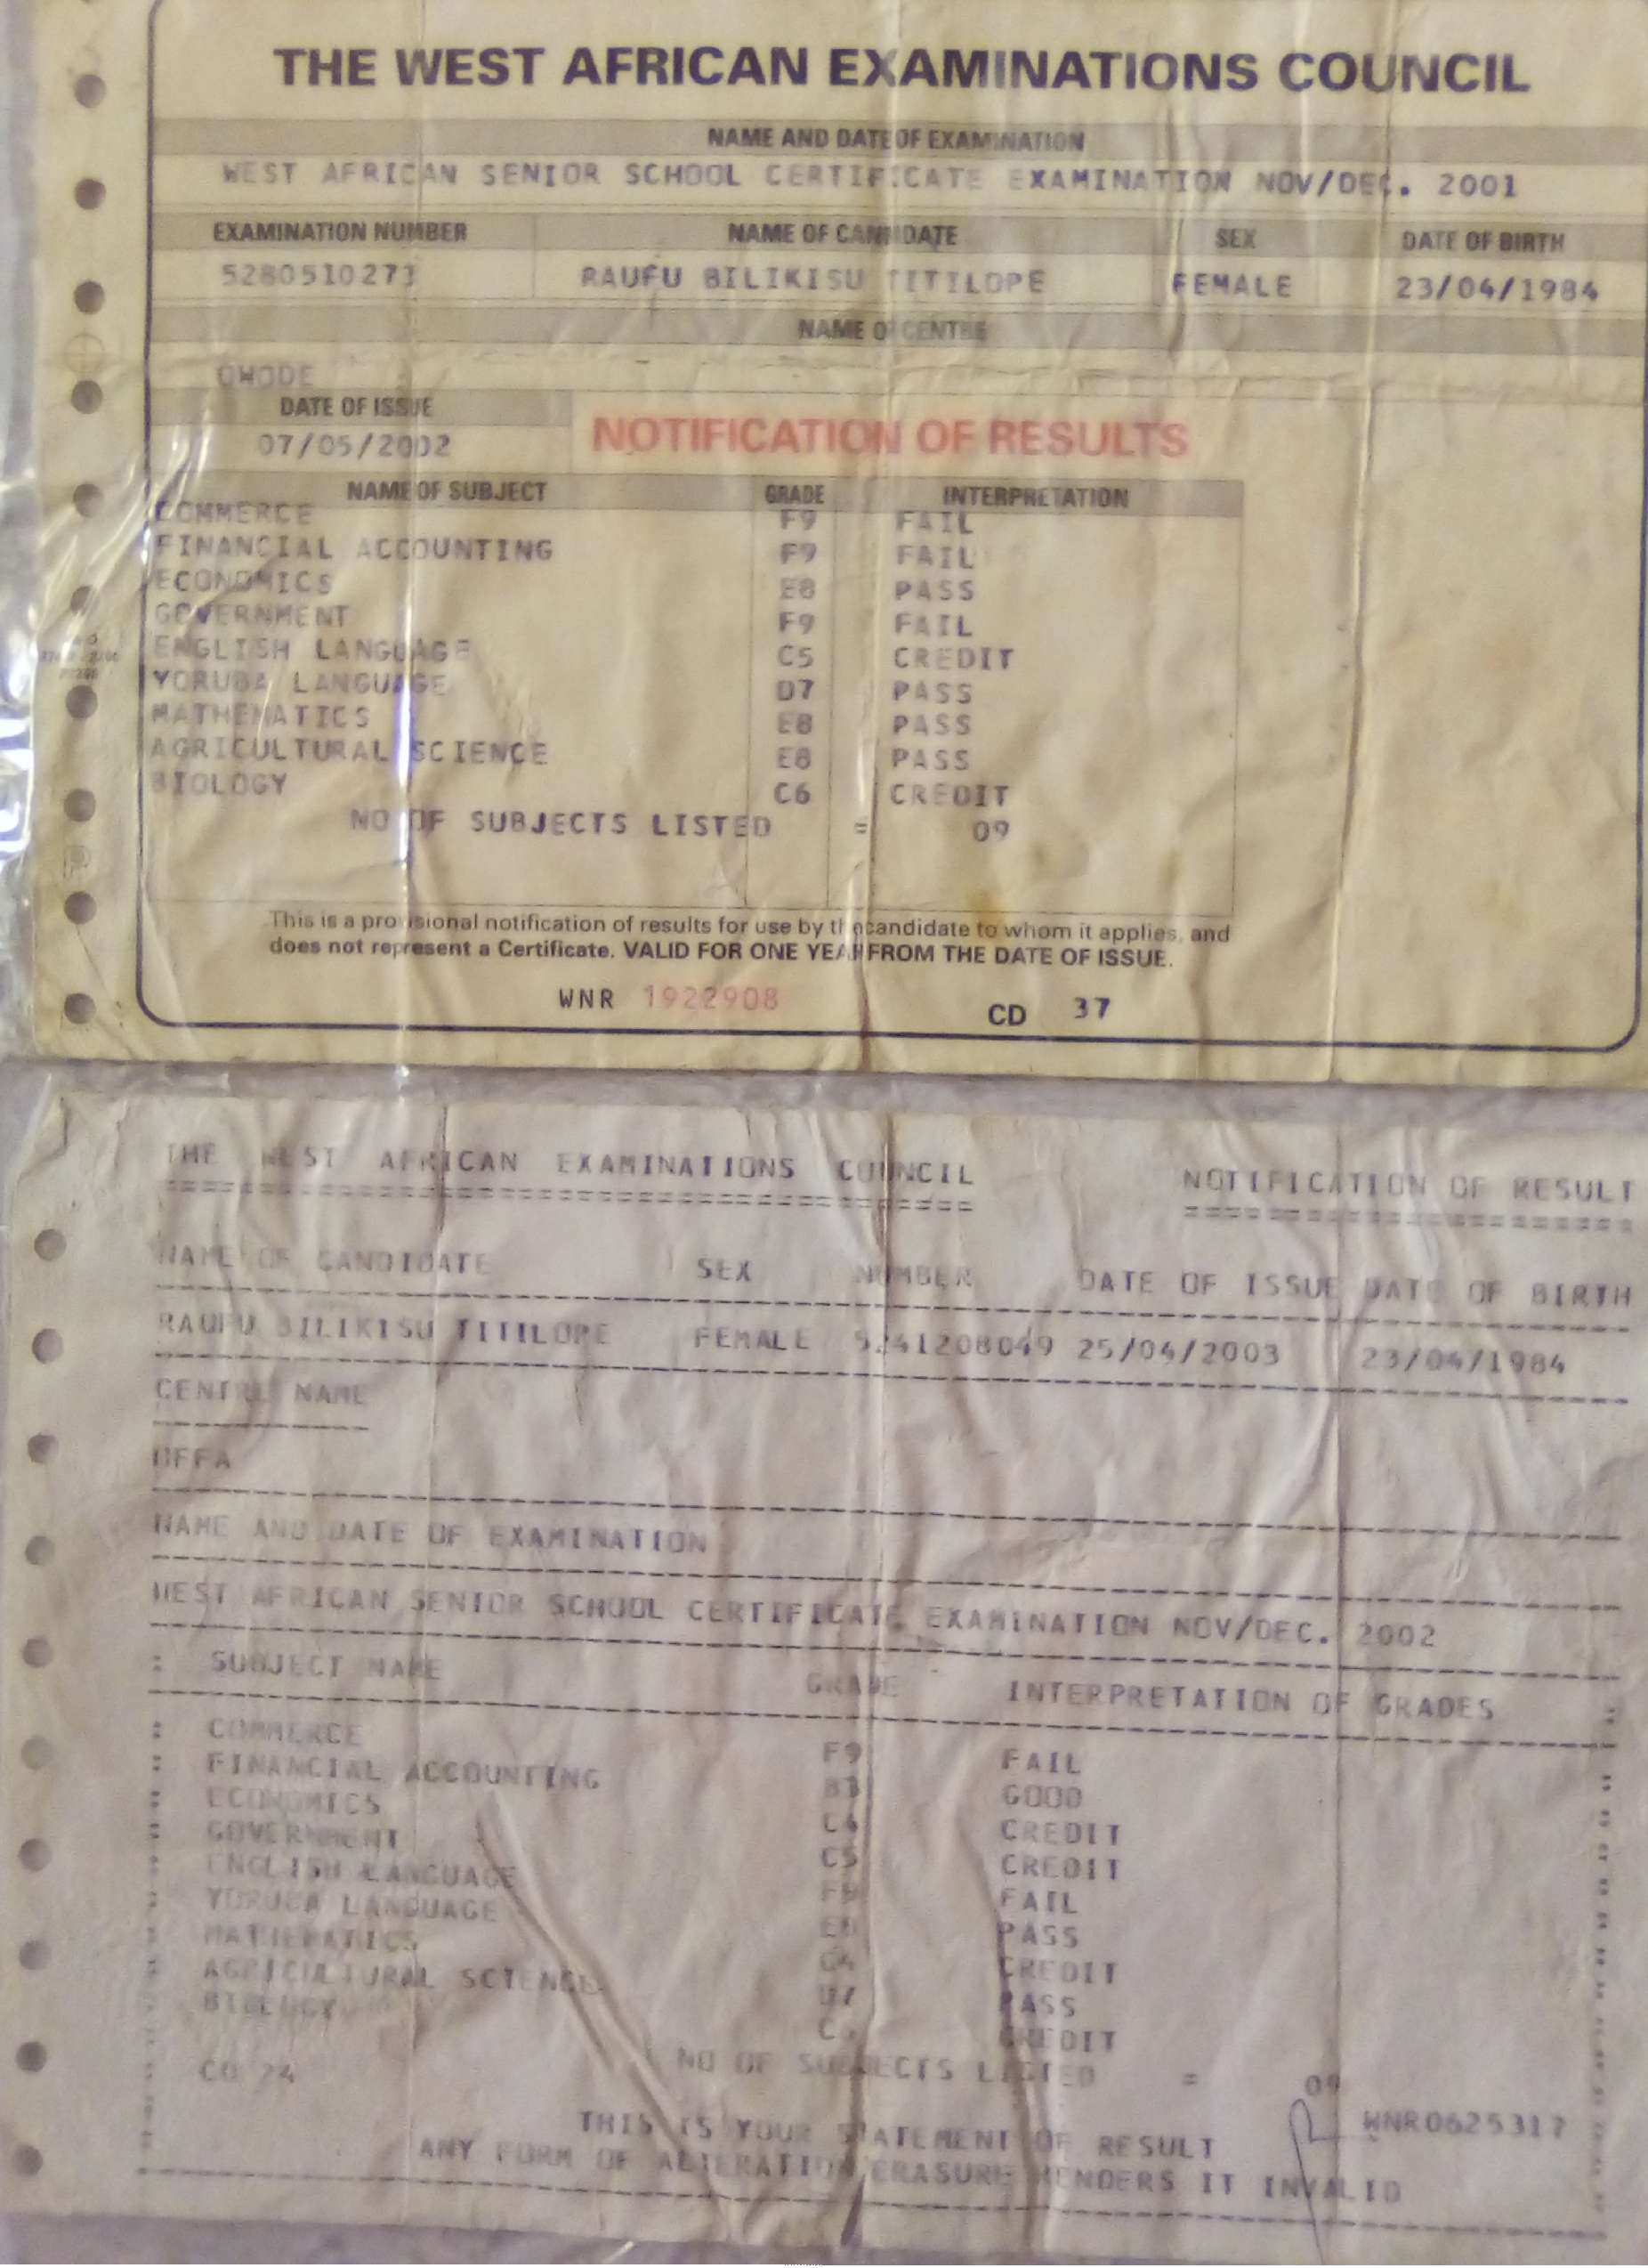 THE WEST AFRICAN EXAMINATIONS COUNCIL
NAME AND DATE OF EXAMINATION
WEST AFRICAN SENIOR SCHOOL CERTIFICATE EXAMINATION NOV/DEC. 2001
EXAMINATION NUMBER NAME OF CANDIDATE SEX DATE OF BIRTH
5280510273 RAUFU BILIKISU TITILOPE FEMALE 23/04/1984
NAME OF CENTRE
OWODE
DATE OF ISSUE
07/05/2002
NOTIFICATION OF RESULTS
NAME OF SUBJECT GRADE INTERPRETATION
COMMERCE F9 FAIL
FINANCIAL ACCOUNTING F9 FAIL
ECONOMICS E8 PASS
GOVERNMENT F9 FAIL
ENGLISH LANGUAGE C5 CREDIT
YORUBA LANGUAGE D7 PASS
MATHEMATICS E8 PASS
AGRICULTURAL SCIENCE E8 PASS
BIOLOGY C6 CREDIT
NO OF SUBJECTS LISTED = 09
This is a provisional notification of results for use by the candidate to whom it applies, and
does not represent a Certificate. VALID FOR ONE YEAR FROM THE DATE OF ISSUE.
WNR 1922908 CD 37
THE WEST AFRICAN EXAMINATIONS COUNCIL NOTIFICATION OF RESULT
NAME OF CANDIDATE SEX NUMBER DATE OF ISSUE DATE OF BIRTH
RAUFU BILIKISU TITILOPE FEMALE 25/04/2003 23/04/1984
CENTRE NAME
OFFA
NAME AND DATE OF EXAMINATION
WEST AFRICAN SENIOR SCHOOL CERTIFICATE EXAMINATION NOV/DEC. 2002
: SUBJECT NAME GRADE INTERPRETATION OF GRADES
: COMMERCE F9 FAIL
: FINANCIAL ACCOUNTING B3 GOOD
: ECONOMICS C4 CREDIT
: GOVERNMENT C5 CREDIT
: ENGLISH LANGUAGE F9 FAIL
: YORUBA LANGUAGE E8 PASS
: MATHEMATICS CREDIT
: AGRICULTURAL SCIENCE D7 PASS
: BIOLOGY CREDIT
NO OF SUBJECTS LISTED = 09
CD 24
THIS IS YOUR STATEMENT OF RESULT WNR0625317
ANY FORM OF ALTERATION/ERASURE RENDERS IT INVALID